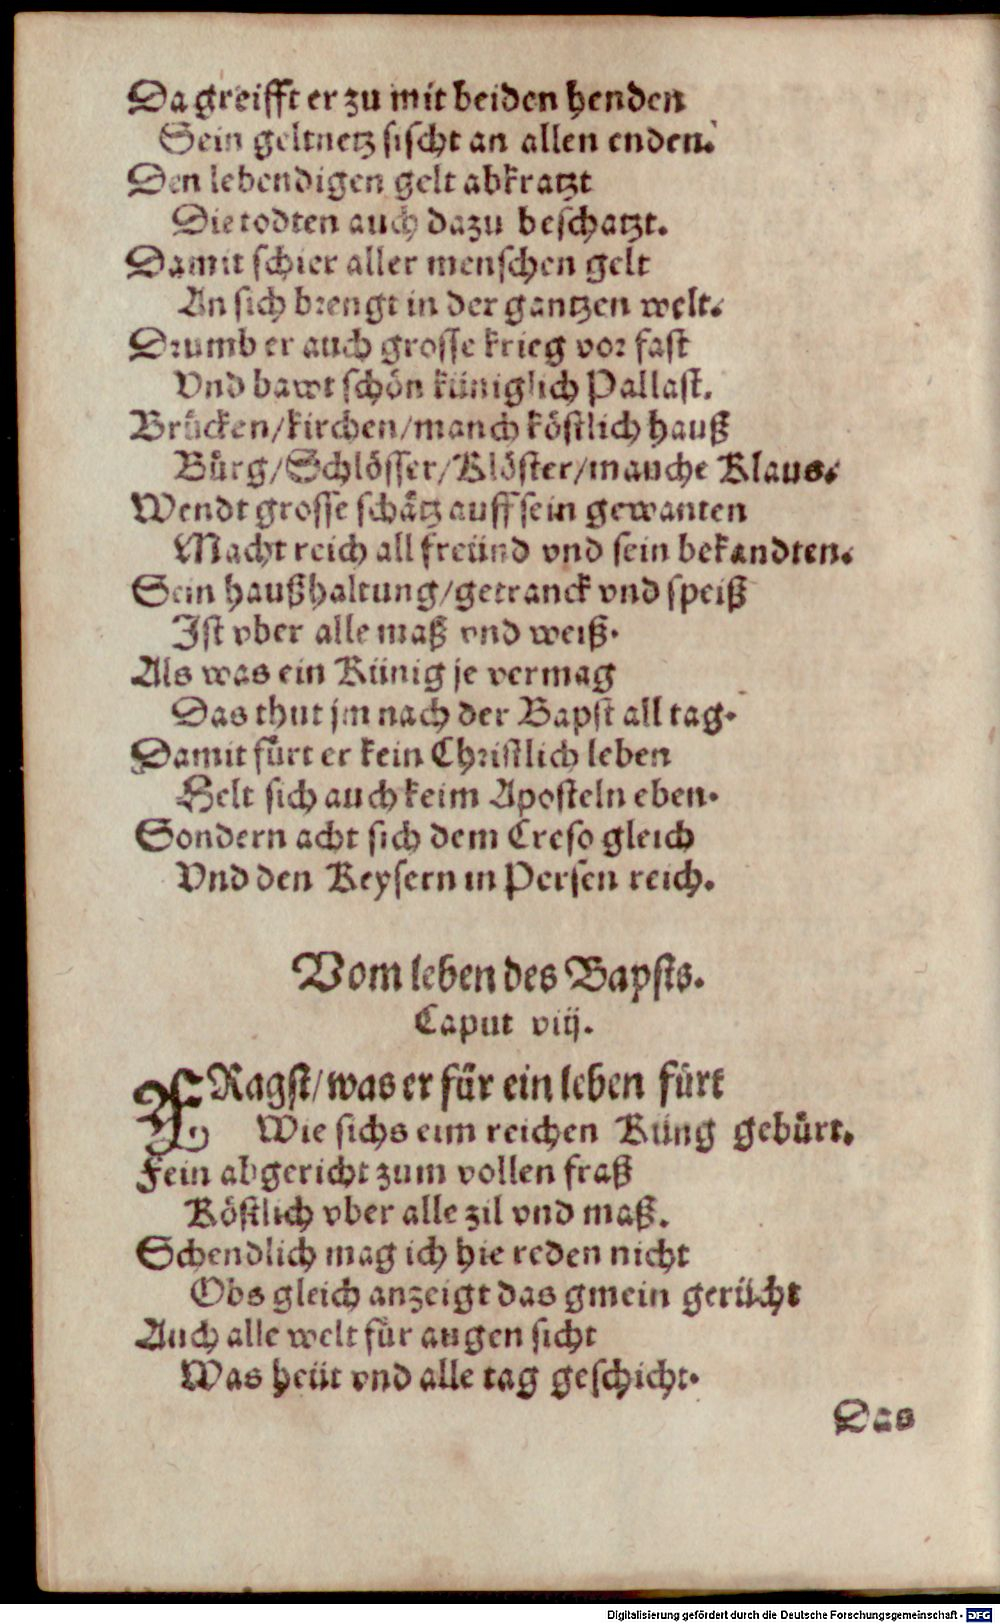 Da greifft er zu mit beiden henden
Sein geltnetz fischt an allen enden.
Den lebendigen gelt abkratzt
Die todten auch dazu beschatzt.
Damit schier aller menschen gelt
An sich brengt in der gantzen welt.
Drumb er auch grosse krieg vor fast
Vnd bawt schön küniglich Pallast.
Brücken/kirchen/manch köstlich hauß
Bürg/Schlösser/Klöster/manche Klaus.
Wendt grosse schätz auff sein gewanten
Macht reich all freünd vnd sein bekandten.
Sein haußhaltung/getranck vnd speiß
Ist vber alle maß vnd weiß.
Als was ein Künig je vermag
Das thut jm nach der Bapst all tag.
Damit fürt er kein Christlich leben
Helt sich auch keim Aposteln eben.
Sondern acht sich dem Creso gleich
Vnd den Keysern in Persen reich.
Vom leben des Bapsts.
Caput viij.
FRagst/was er für ein leben fürt
Wie sichs eim reichen Küng gebürt.
Fein abgericht zum vollen fraß
Köstlich vber alle zil vnd maß.
Schendlich mag ich hie reden nicht
Obs gleich anzeigt das gmein gerücht
Auch alle welt für augen sicht
Was heüt vnd alle tag geschicht.
Das
Digitalisierung gefördert durch die Deutsche Forschungsgemeinschaft - DFG